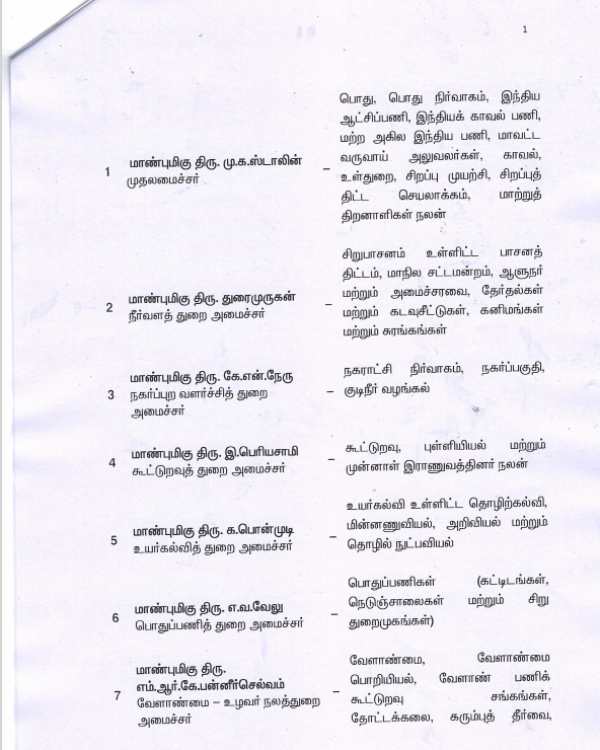 1
பொது, பொது நிர்வாகம், இந்திய
ஆட்சிப்பணி, இந்தியக் காவல் பணி,
மற்ற அகில இந்திய பணி, மாவட்ட
1 மாண்புமிகு திரு. மு.க.ஸ்டாலின் – வருவாய் அலுவலர்கள், காவல்,
முதலமைச்சர் உள்துறை, சிறப்பு முயற்சி, சிறப்புத்
திட்ட செயலாக்கம், மாற்றுத்
திறனாளிகள் நலன்
சிறுபாசனம் உள்ளிட்ட பாசனத்
திட்டம், மாநில சட்டமன்றம், ஆளுநர்
2 மாண்புமிகு திரு. துரைமுருகன் – மற்றும் அமைச்சரவை, தேர்தல்கள்
நீர்வளத் துறை அமைச்சர் மற்றும் கடவுசீட்டுகள், கனிமங்கள்
மற்றும் சுரங்கங்கள்
3 மாண்புமிகு திரு. கே.என்.நேரு – நகராட்சி நிர்வாகம், நகர்ப்பகுதி,
நகர்ப்புற வளர்ச்சித் துறை குடிநீர் வழங்கல்
அமைச்சர்
4 மாண்புமிகு திரு. இ.பெரியசாமி – கூட்டுறவு, புள்ளியியல் மற்றும்
கூட்டுறவுத் துறை அமைச்சர் முன்னாள் இராணுவத்தினர் நலன்
உயர்கல்வி உள்ளிட்ட தொழிற்கல்வி,
5 மாண்புமிகு திரு. க.பொன்முடி – மின்னணுவியல், அறிவியல் மற்றும்
உயர்கல்வித் துறை அமைச்சர் தொழில் நுட்பவியல்
பொதுப்பணிகள் (கட்டிடங்கள்,
6 மாண்புமிகு திரு. எ.வ.வேலு – நெடுஞ்சாலைகள் மற்றும் சிறு
பொதுப்பணித் துறை அமைச்சர் துறைமுகங்கள்)
மாண்புமிகு திரு. வேளாண்மை, வேளாண்மை
7 எம்.ஆர்.கே.பன்னீர்செல்வம் – பொறியியல், வேளாண் பணிக்
வேளாண்மை – உழவர் நலத்துறை கூட்டுறவு சங்கங்கள்,
அமைச்சர் தோட்டக்கலை, கரும்புத் தீர்வை,